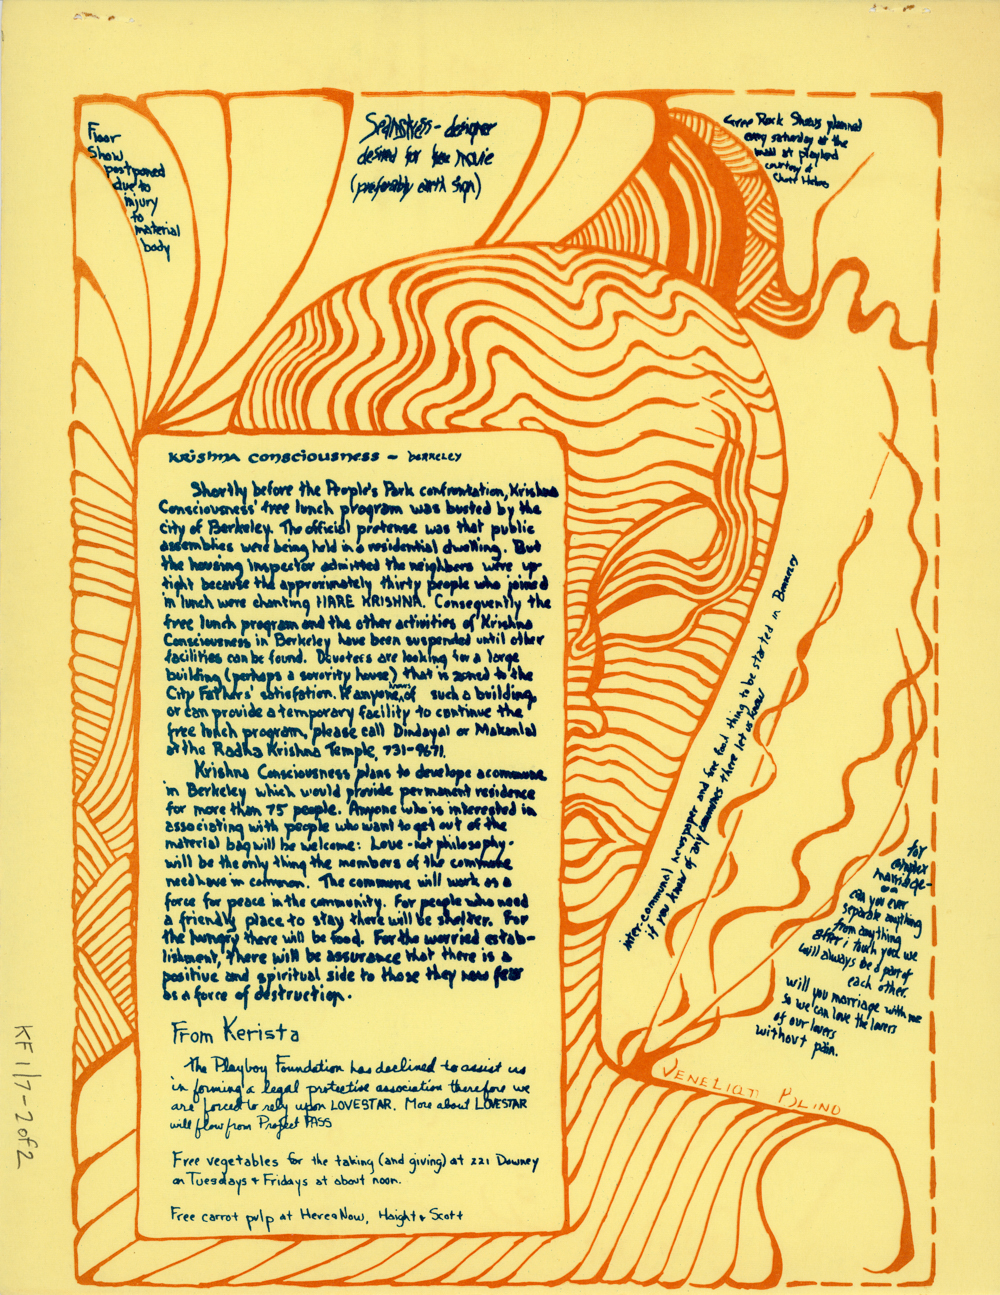 Floor
Show
postponed
due to
injury
to
material
body
Seamstress - designer
desired for
movie
(preferably earth sign)
Free Rock Shows planned
every saturday at the
at playland
courtesy of
Chet Helms
Krishna Consciousness - Berkeley
Shortly before the People's Park confrontation, Krishna
Consciousness' free lunch program was busted by the
city of Berkeley. The official pretense was that public
assemblies were being held in a residential dwelling. But
the housing inspector admitted the neighbers were up-
tight because the approximately thirty people who joined
in lunch were chanting HARE KRISHNA. Consequently the
free lunch program and the other activities of Krishna
Consciousness in Berkeley have been suspended until other
facilities can be found. Devotees are looking for a large
building (perhaps a sorority house) that is zoned to the
City Fathers' satisfation. If anyone knows of such a building,
or can provide a temporary facility to continue the
free lunch program, please call Dindayal or Makanlal
at the Radha Krishna Temple, 731-9671.
Krishna Consciousness plans to develope a commune
in Berkeley which would provide permanent residence
for more than 75 people. Anyone who is interested in
associating with people who want to get out of the
material bag will be welcome: Love - not philosophy -
will be the only thing the members of the commune
need have in common. The commune will work as a
force for peace in the community. For people who need
a friendly place to stay there will be shelter. For
the hungry there will be food. For the worried estab-
lishment, there will be assurance that there is a
positive and spiritual side to those they now fear
as a force of destruction.
From Kerista
The Playboy Foundation has declined to assist us
in forming a legal protective association therefore we
are forced to rely upon LOVESTAR. More about LOVESTAR
will flow from Project PASS
Free vegetables for the taking (and giving) at 221 Downey
on Tuesdays & Fridays at about noon.
Free carrot pulp at Here & Now, Haight & Scott
inter-communal newspaper and free food thing to be started in Berkeley
if you know of any communes there let us know
for
complex
marriage-
can you ever
separate anything
from anything
after i touch you we
will always be a part of
each other.
will you marriage with me
so we can love the lovers
of our lovers
without pain.
VENELIAN BLIND
KF 1/7-2 of 2